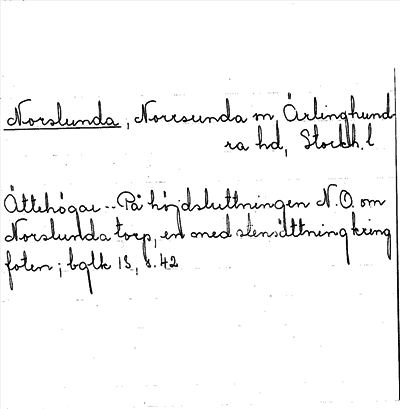 Norslunda, Norrsunda sn, Ärlinghund
ra hd, Stockh. l
Ättehögar.- På höjdsluttningen N.O. om
Norslunda torp, en med stensättning kring
foten; bglk 13, s. 42